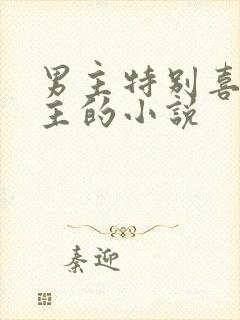 男主特别喜
主的小说
秦迎